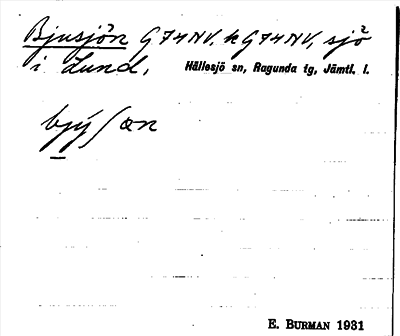 Bjusjön G74NV, k G74NV, sjö
i Lund. Hällesjö sn, Ragunda tg, Jämtl. l.
E. BURMAN 1931